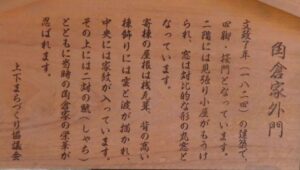 角倉家外門
文政7年(一八二四)の建築で、
四脚・櫓門となっています。
二階には見張り小屋がもうけ
られ、窓は対比的な形の丸窓と
なっています。
寄棟の屋根は桟瓦葺、背の高い
棟飾りには雲と波が描かれ、
中央には家紋が入っています。
その上には二対の鯱(しゃち)
とともに当時の角倉家の栄華が
忍ばれます。
上下まちづくり協議会